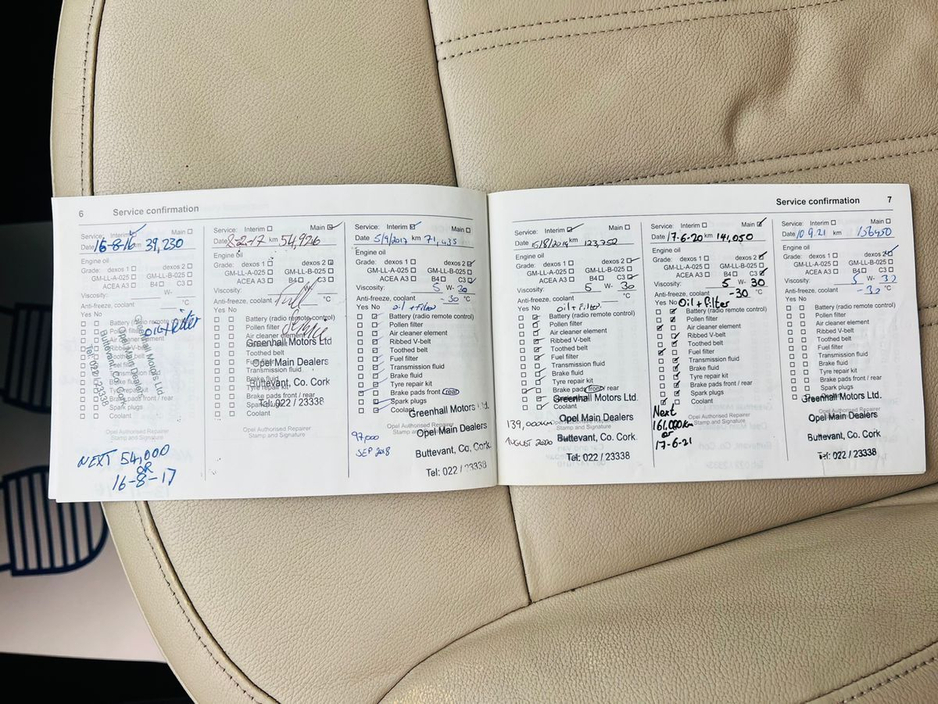 6 Service confirmation
Service: Interim Main
Date 16-8-16 39,230
Engine oil
Grade: dexos 1 dexos 2
GM-LL-A-025 GM-LL-B-025
ACEA A3 B4 C3
Viscosity: W-
Anti-freeze, coolant °C
Yes No
Battery (radio remote control)
Pollen filter
Greenhall Motors Ltd
Opel Main Dealers
Buttevant, Co. Cork
Tel: 022 / 23338
NEXT 54,000
OR
16-8-17
Service: Interim Main
Date 8-2-17 km 54,926
Engine oil
Grade: dexos 1 dexos 2
GM-LL-A-025 GM-LL-B-025
ACEA A3 B4 C3
Viscosity: W-
Anti-freeze, coolant °C
Yes No
Full
Battery (radio remote control)
Pollen filter
Air cleaner element
Greenhall Motors Ltd
Toothed belt
Opel Main Dealers
Transmission fluid
Buttevant, Co. Cork
Brake pads front / rear
Spark plugs
Tel: 022 / 23338
Coolant
Opel Authorised Repairer
Stamp and Signature
Service: Interim Main
Date 5/9/2017 km 71,435
Engine oil
Grade: dexos 1 dexos 2
GM-LL-A-025 GM-LL-B-025
ACEA A3 B4 C3
Viscosity: 5 W- 30
Anti-freeze, coolant -30 °C
Yes No oil + filter
Battery (radio remote control)
Pollen filter
Air cleaner element
Ribbed V-belt
Toothed belt
Fuel filter
Transmission fluid
Brake fluid
Tyre repair kit
Brake pads front / rear
Spark plugs
Coolant
Greenhall Motors Ltd
Opel Main Dealers
Buttevant, Co. Cork
Tel: 022 / 23338
97,000
SEP 2018
Service confirmation 7
Service: Interim Main
Date 5/8/2019 km 123,252
Engine oil
Grade: dexos 1 dexos 2
GM-LL-A-025 GM-LL-B-025
ACEA A3 B4 C3
Viscosity: 5 W- 30
Anti-freeze, coolant -30 °C
Yes No oil + filter
Battery (radio remote control)
Pollen filter
Air cleaner element
Ribbed V-belt
Toothed belt
Fuel filter
Transmission fluid
Brake fluid
Tyre repair kit
Brake pads front / rear
Greenhall Motors Ltd.
Coolant
Opel Main Dealers
Buttevant, Co. Cork
Tel: 022 / 23338
139,000km
AUGUST 2020
Service: Interim Main
Date 17-6-20 km 141,050
Engine oil
Grade: dexos 1 dexos 2
GM-LL-A-025 GM-LL-B-025
ACEA A3 B4 C3
Viscosity: 5 W- 30
Anti-freeze, coolant -30 °C
Yes No Oil + filter
Battery (radio remote control)
Pollen filter
Air cleaner element
Ribbed V-belt
Toothed belt
Fuel filter
Transmission fluid
Brake fluid
Tyre repair kit
Brake pads front / rear
Spark plugs
Coolant
Next
161,000km
or
17-6-21
Opel Authorised Repairer
Stamp and Signature
Service: Interim Main
Date 10.9.21 km 156450
Engine oil
Grade: dexos 1 dexos 2
GM-LL-A-025 GM-LL-B-025
ACEA A3 B4 C3
Viscosity: 5 W- 30
Anti-freeze, coolant -30 °C
Yes No
Battery (radio remote control)
Pollen filter
Air cleaner element
Ribbed V-belt
Toothed belt
Fuel filter
Transmission fluid
Brake fluid
Tyre repair kit
Brake pads front / rear
Spark plugs
Greenhall Motors Ltd.
Opel Main Dealers
Buttevant, Co. Cork
Tel: 022 / 23338